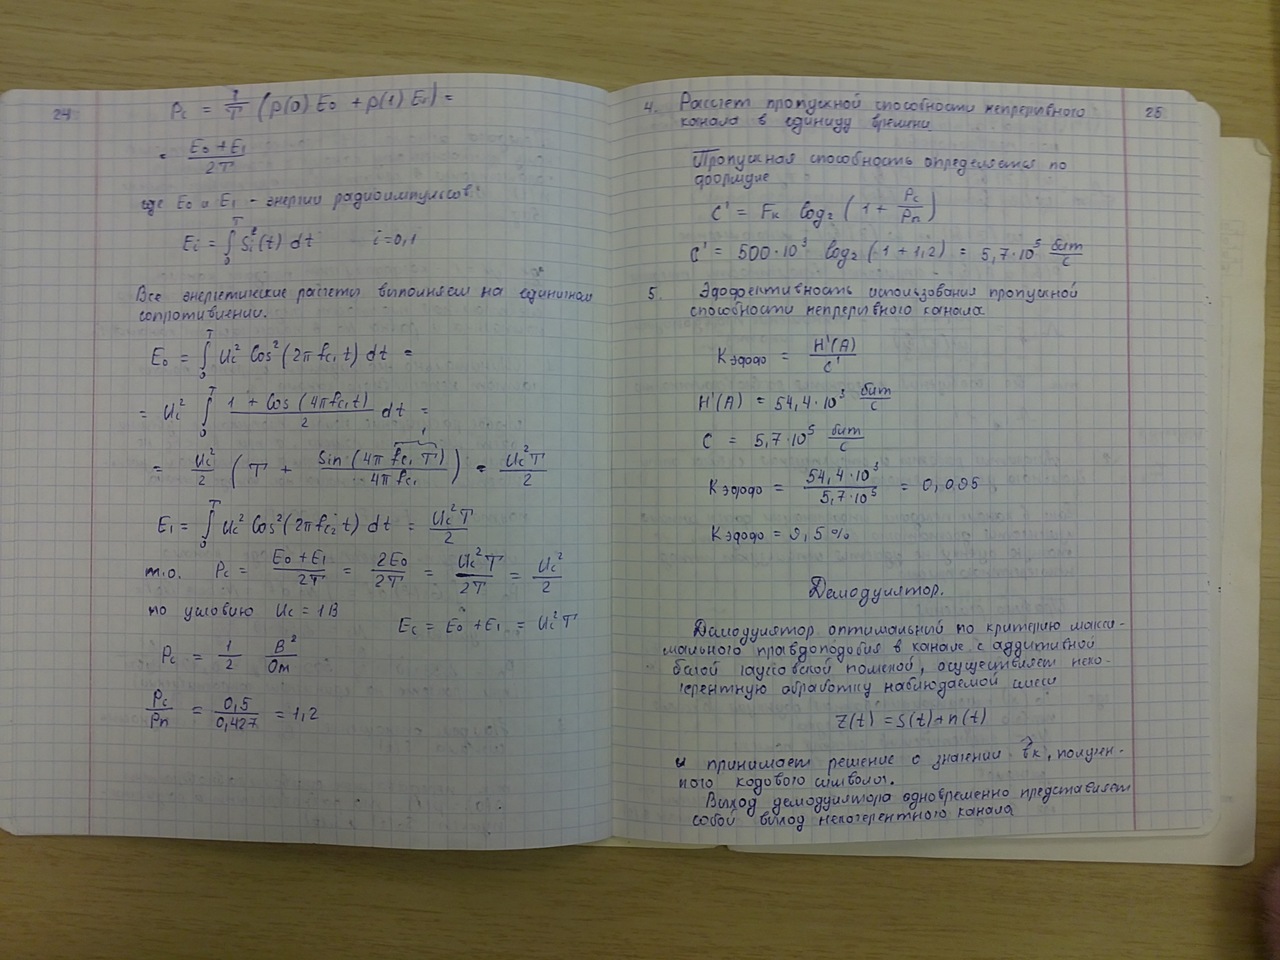 24
Pс = 1/T (p(0) E₀ + p(1) E₁) =
= (E₀ + E₁)/2T
где E₀ и E₁ - энергии радиоимпульсов:
Ei = ∫₀ᵀ Si²(t) dt i=0,1
Все энергетические расчеты выполняем на единичном
сопротивлении.
E₀ = ∫₀ᵀ Uc² Cos² (2π fc₁ t) dt =
= Uc² ∫₀ᵀ (1 + Cos (4π fc₁ t))/2 dt =
= Uc²/2 (T + Sin (4π fc₁ T)/4π fc₁) = Uc² T/2
E₁ = ∫₀ᵀ Uc² Cos² (2π fc₂ t) dt = Uc² T/2
т.о. Pc = (E₀ + E₁)/2T = 2E₀/2T = Uc² T/2T = Uc²/2
по условию Uc = 1 В
Ec = E₀ + E₁ = Uc² T
Pc = 1/2 В²/Ом
Pc/Pп = 0,5/0,427 = 1,2
25
4. Рассчет пропускной способности непрерывного
канала в единицу времени
Пропускная способность определяется по
формуле
C' = Fк log₂ (1 + Pc/Pп)
C' = 500·10³ log₂ (1 + 1,2) = 5,7·10⁵ бит/с
5. Эффективность использования пропускной
способности непрерывного канала
Kэфф = H'(A)/C'
H'(A) = 54,4·10³ бит/с
C = 5,7·10⁵ бит/с
Kэфф = 54,4·10³/5,7·10⁵ = 0,095
Kэфф = 9,5%
Демодулятор.
Демодулятор оптимальный по критерию макси-
мального правдоподобия в канале с аддитивной
белой гауссовской помехой, осуществляет неко-
герентную обработку наблюдаемой смеси
Z(t) = S(t) + n(t)
и принимает решение о значении b̂к, получен-
ного кодового символа.
Выход демодулятора одновременно представляет
собой выход некогерентного канала